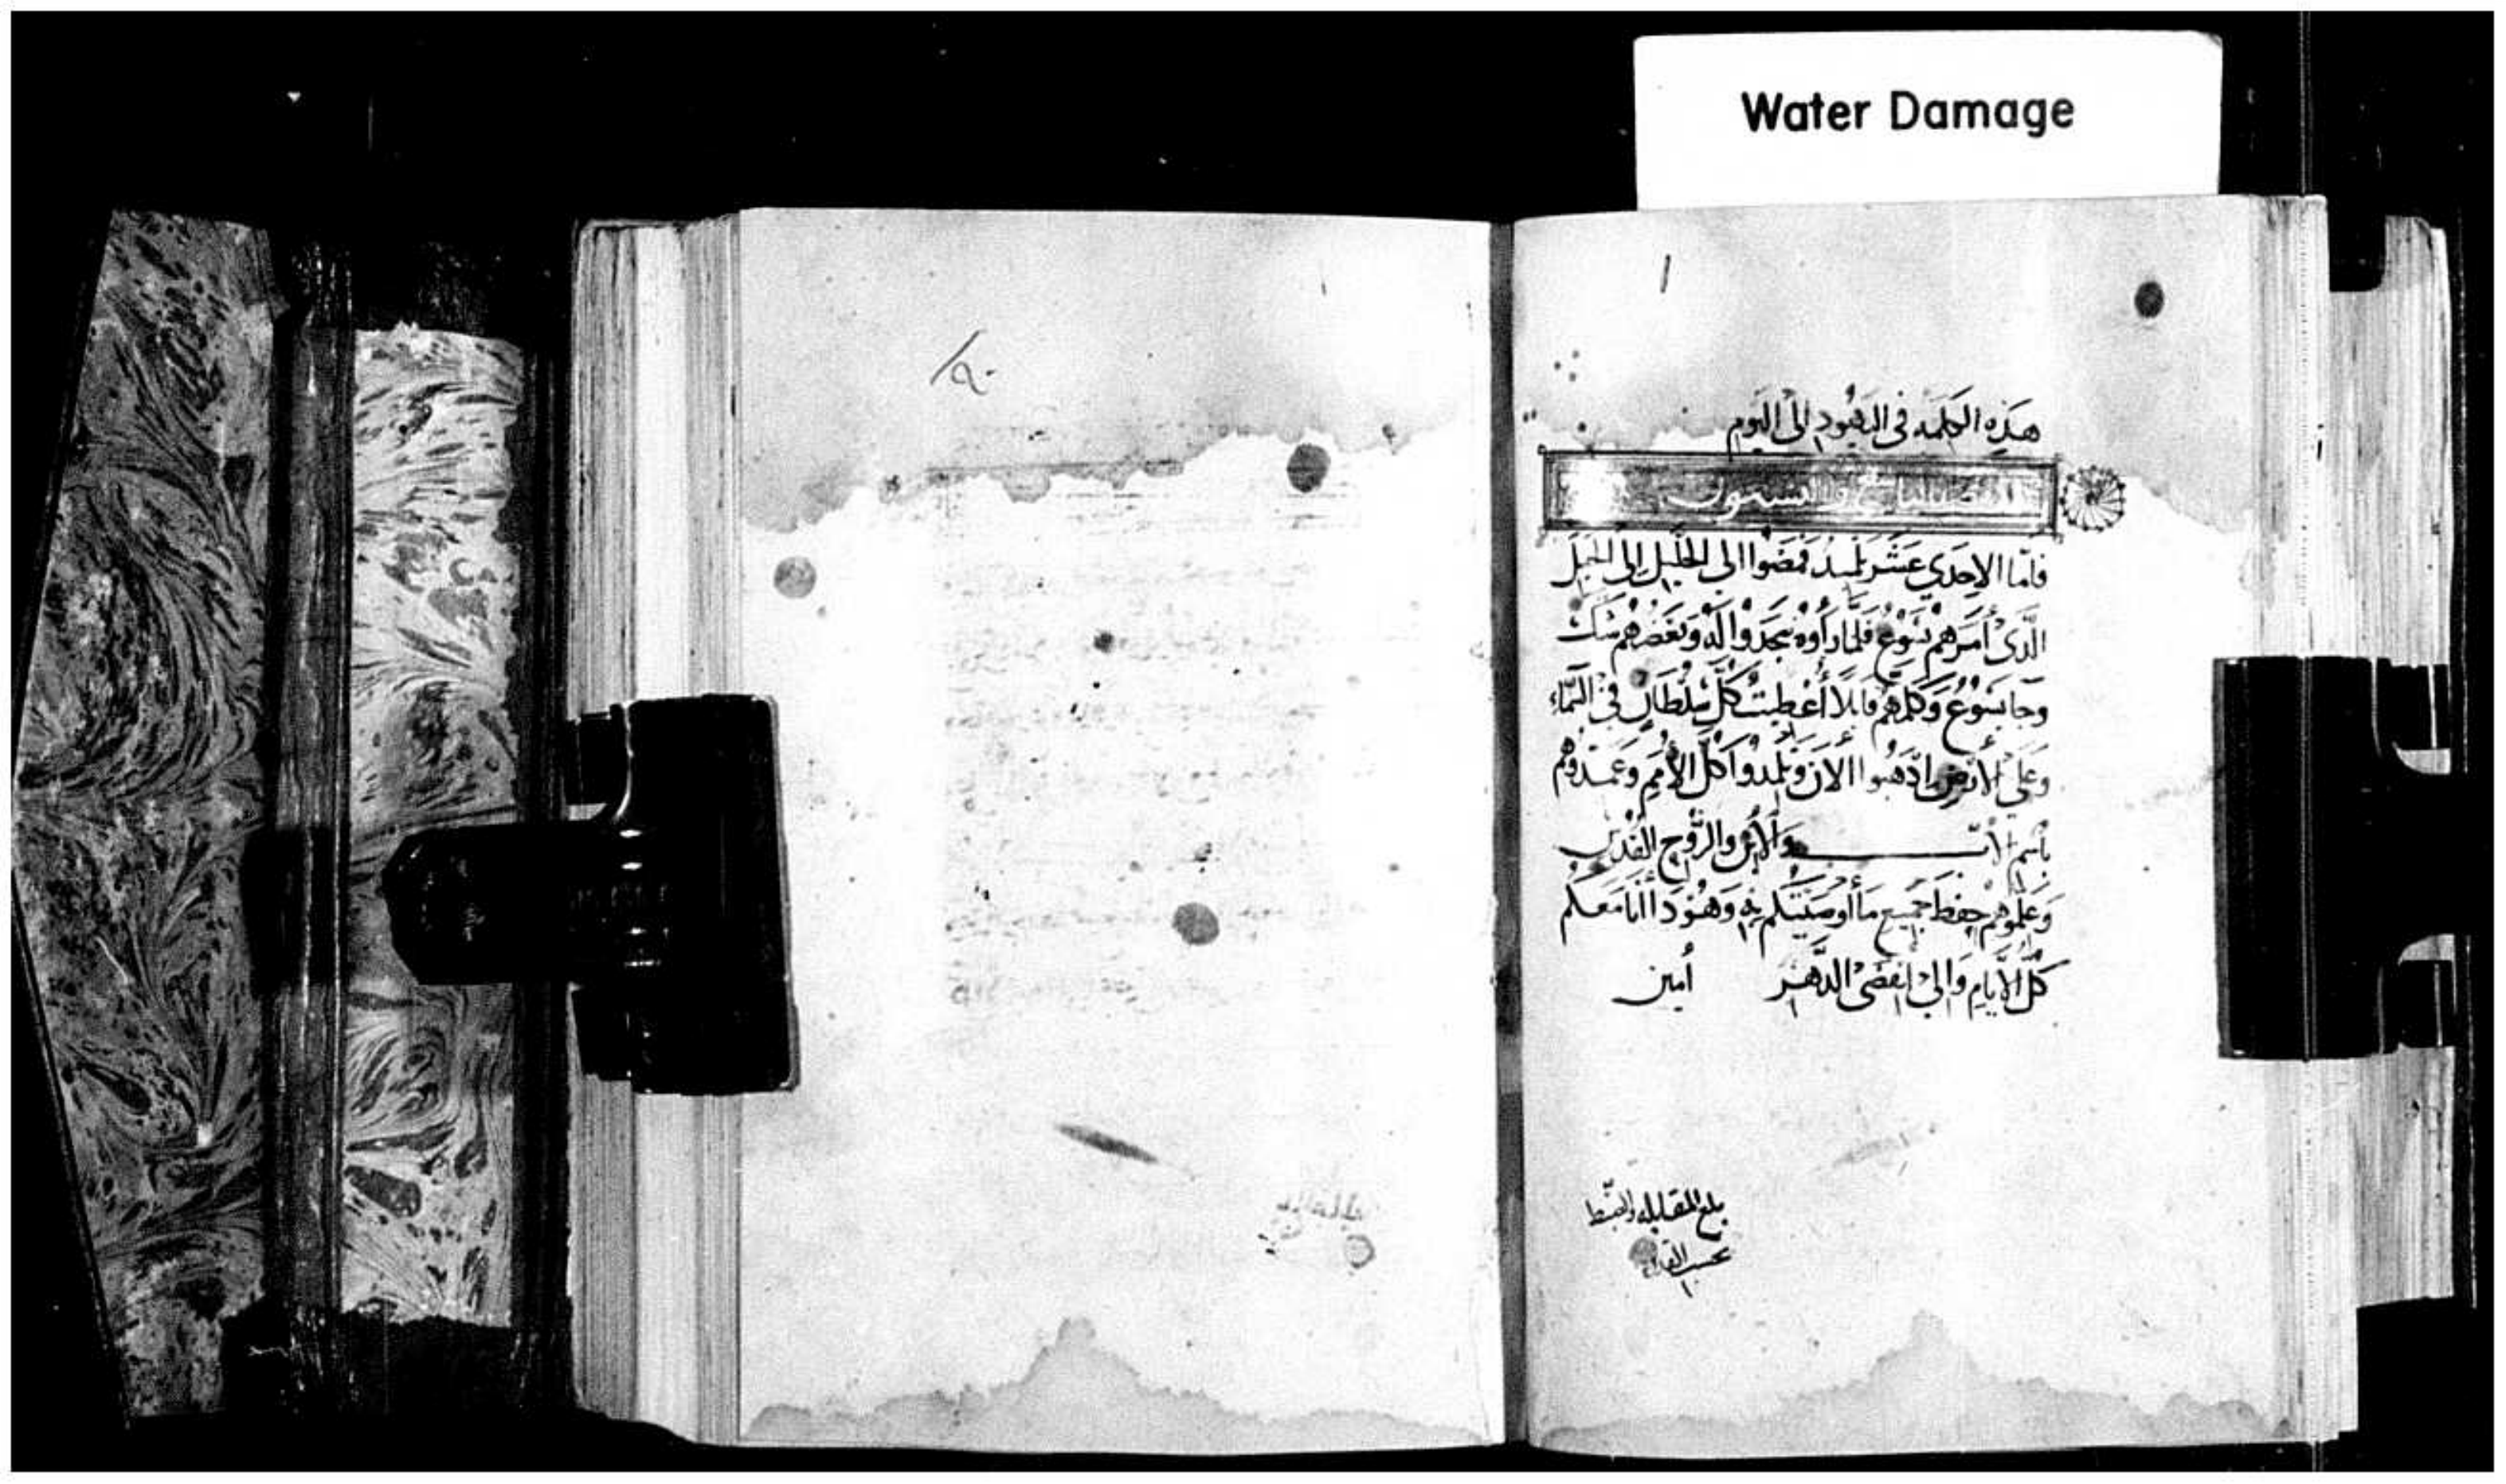 Water Damage
هذه الكلمة في اليهود الى اليوم
والتسعون
فاما الاحدي عشر تلميذ فمضوا الي الجليل الى الجبل
الذي أمرهم يسوع فلما راوه سجدوا له وبعضهم شك
وجا يسوع وكلمهم قايلا أعطيت كل سلطان في السماء
وعلي الارض اذهبوا الان وتلمدوا كل الأمم وعمدوهم
باسم الاب والابن والروح القدس
وعلموهم حفظ جميع ما أوصيتكم به وهو دا انا معكم
كل الأيام والى انقضى الدهر أمين
بلغ المقابله والضبط
بحسب